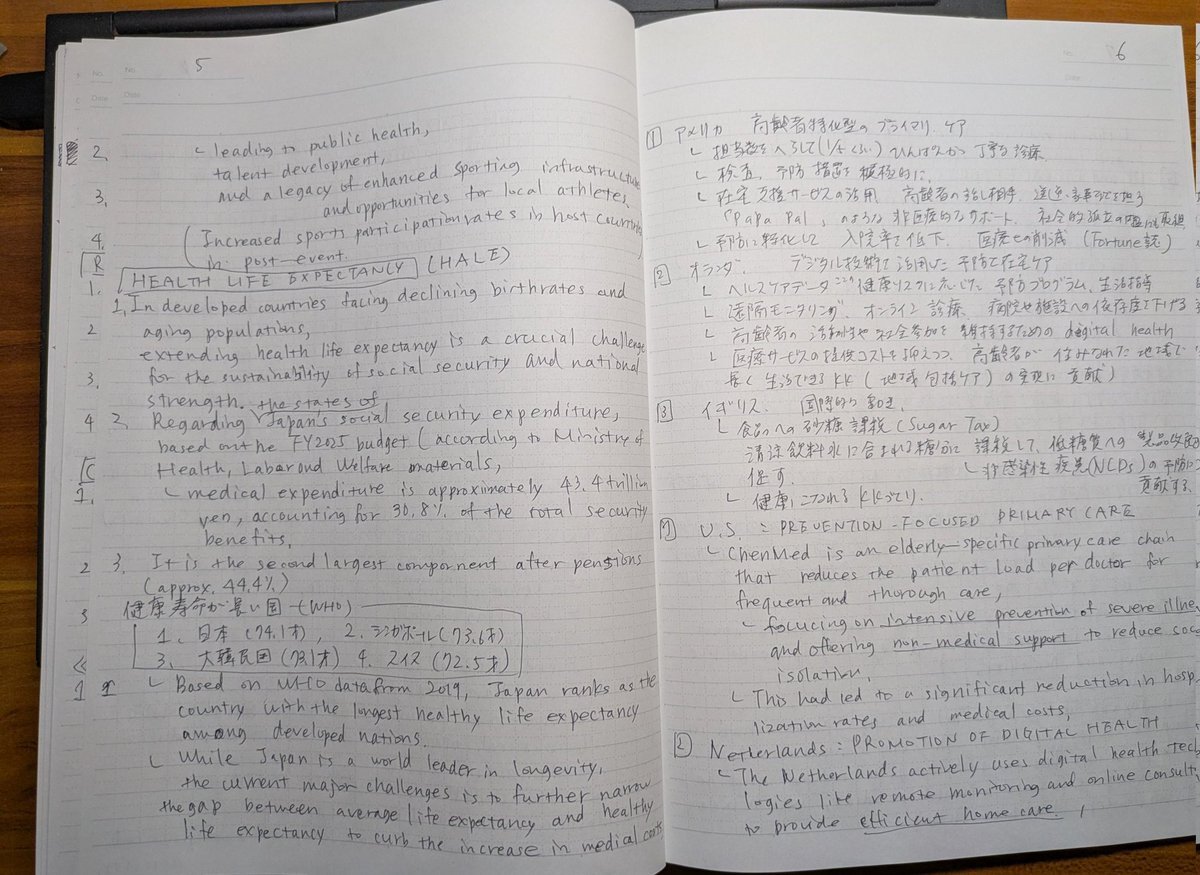 5
2. ↳ leading to public health,
talent development,
3. and a legacy of enhanced sporting infrastructure
and opportunities for local athletes.
4. (Increased sports participation rates in host countries
R in post-event.
1. HEALTH LIFE EXPECTANCY (HALE)
1. In developed countries facing declining birthrates and
2 aging populations,
extending health life expectancy is a crucial challenge
3. for the sustainability of social security and national
strength.
4 2. Regarding the states of Japan's social security expenditure,
based on the FY2025 budget (according to Ministry of
C Health, Labor and Welfare materials,
1. ↳ medical expenditure is approximately 43.4 trillion
yen, accounting for 30.8% of the total security
benefits.
2 3. It is the second largest compornent after pensions
(approx. 44.4%)
3 健康寿命が長い国 (WHO)
1. 日本 (74.1才), 2. シンガポール (73.6才)
3. 大韓民国 (73.1才) 4. スイス (72.5才)
1 ↳ Based on WHO data from 2019, Japan ranks as the
country with the longest healthy life expectancy
among developed nations.
↳ While Japan is a world leader in longevity,
the current major challenges is to further narrow
the gap between average life expectancy and healthy
life expectancy to curb the increase in medical costs
6
1 アメリカ 高齢者特化型のプライマリ・ケア
↳ 担当数をへらして(1/4くらい) ひんぱんかつ丁寧な診療
↳ 検査、予防措置を積極的に、
↳ 在宅支援サービスの活用 高齢者の話し相手、送迎、家事などを担う
「Papa Pal」のような非医療的なサポート、社会的孤立の
↳ 予防に特化して 入院率を低下、医療費の削減 (Fortune誌)
2 オランダ、デジタル技術を活用した予防と在宅ケア
↳ ヘルスケアデータ 健康リスクに応じた 予防プログラム、生活指導
↳ 遠隔モニタリング、オンライン診療、病院や施設への依存度を下げる
↳ 高齢者の活動性や社会参加を維持するための digital health
↳ 医療サービスの提供コストを抑えつつ、高齢者が住みなれた地域で
長く生活できる (地域包括ケア) の実現に貢献)
3 イギリス、国際的な動き、
↳ 食品への砂糖課税 (Sugar Tax)
清涼飲料水に含まれる糖分に課税して、低糖質への製品改良
促す、
↳ 非感染性疾患(NCDs)の予防に
貢献する、
↳ 健康になれる づくり、
1 U.S. : PREVENTION-FOCUSED PRIMARY CARE
↳ ChenMed is an elderly-specific primary care chain
that reduces the patient load per doctor for
frequent and thorough care,
↳ focucing on intensive prevention of severe illne
and offering non-medical support to reduce soc
isolation.
↳ This had led to a significant reduction in hosp
lization rates and medical costs,
2 Netherlands : PROMOTION OF DIGITAL HEALTH
↳ The Netherlands actively uses digital health tech
logies like remote monitoring and online consult
to provide efficient home care.